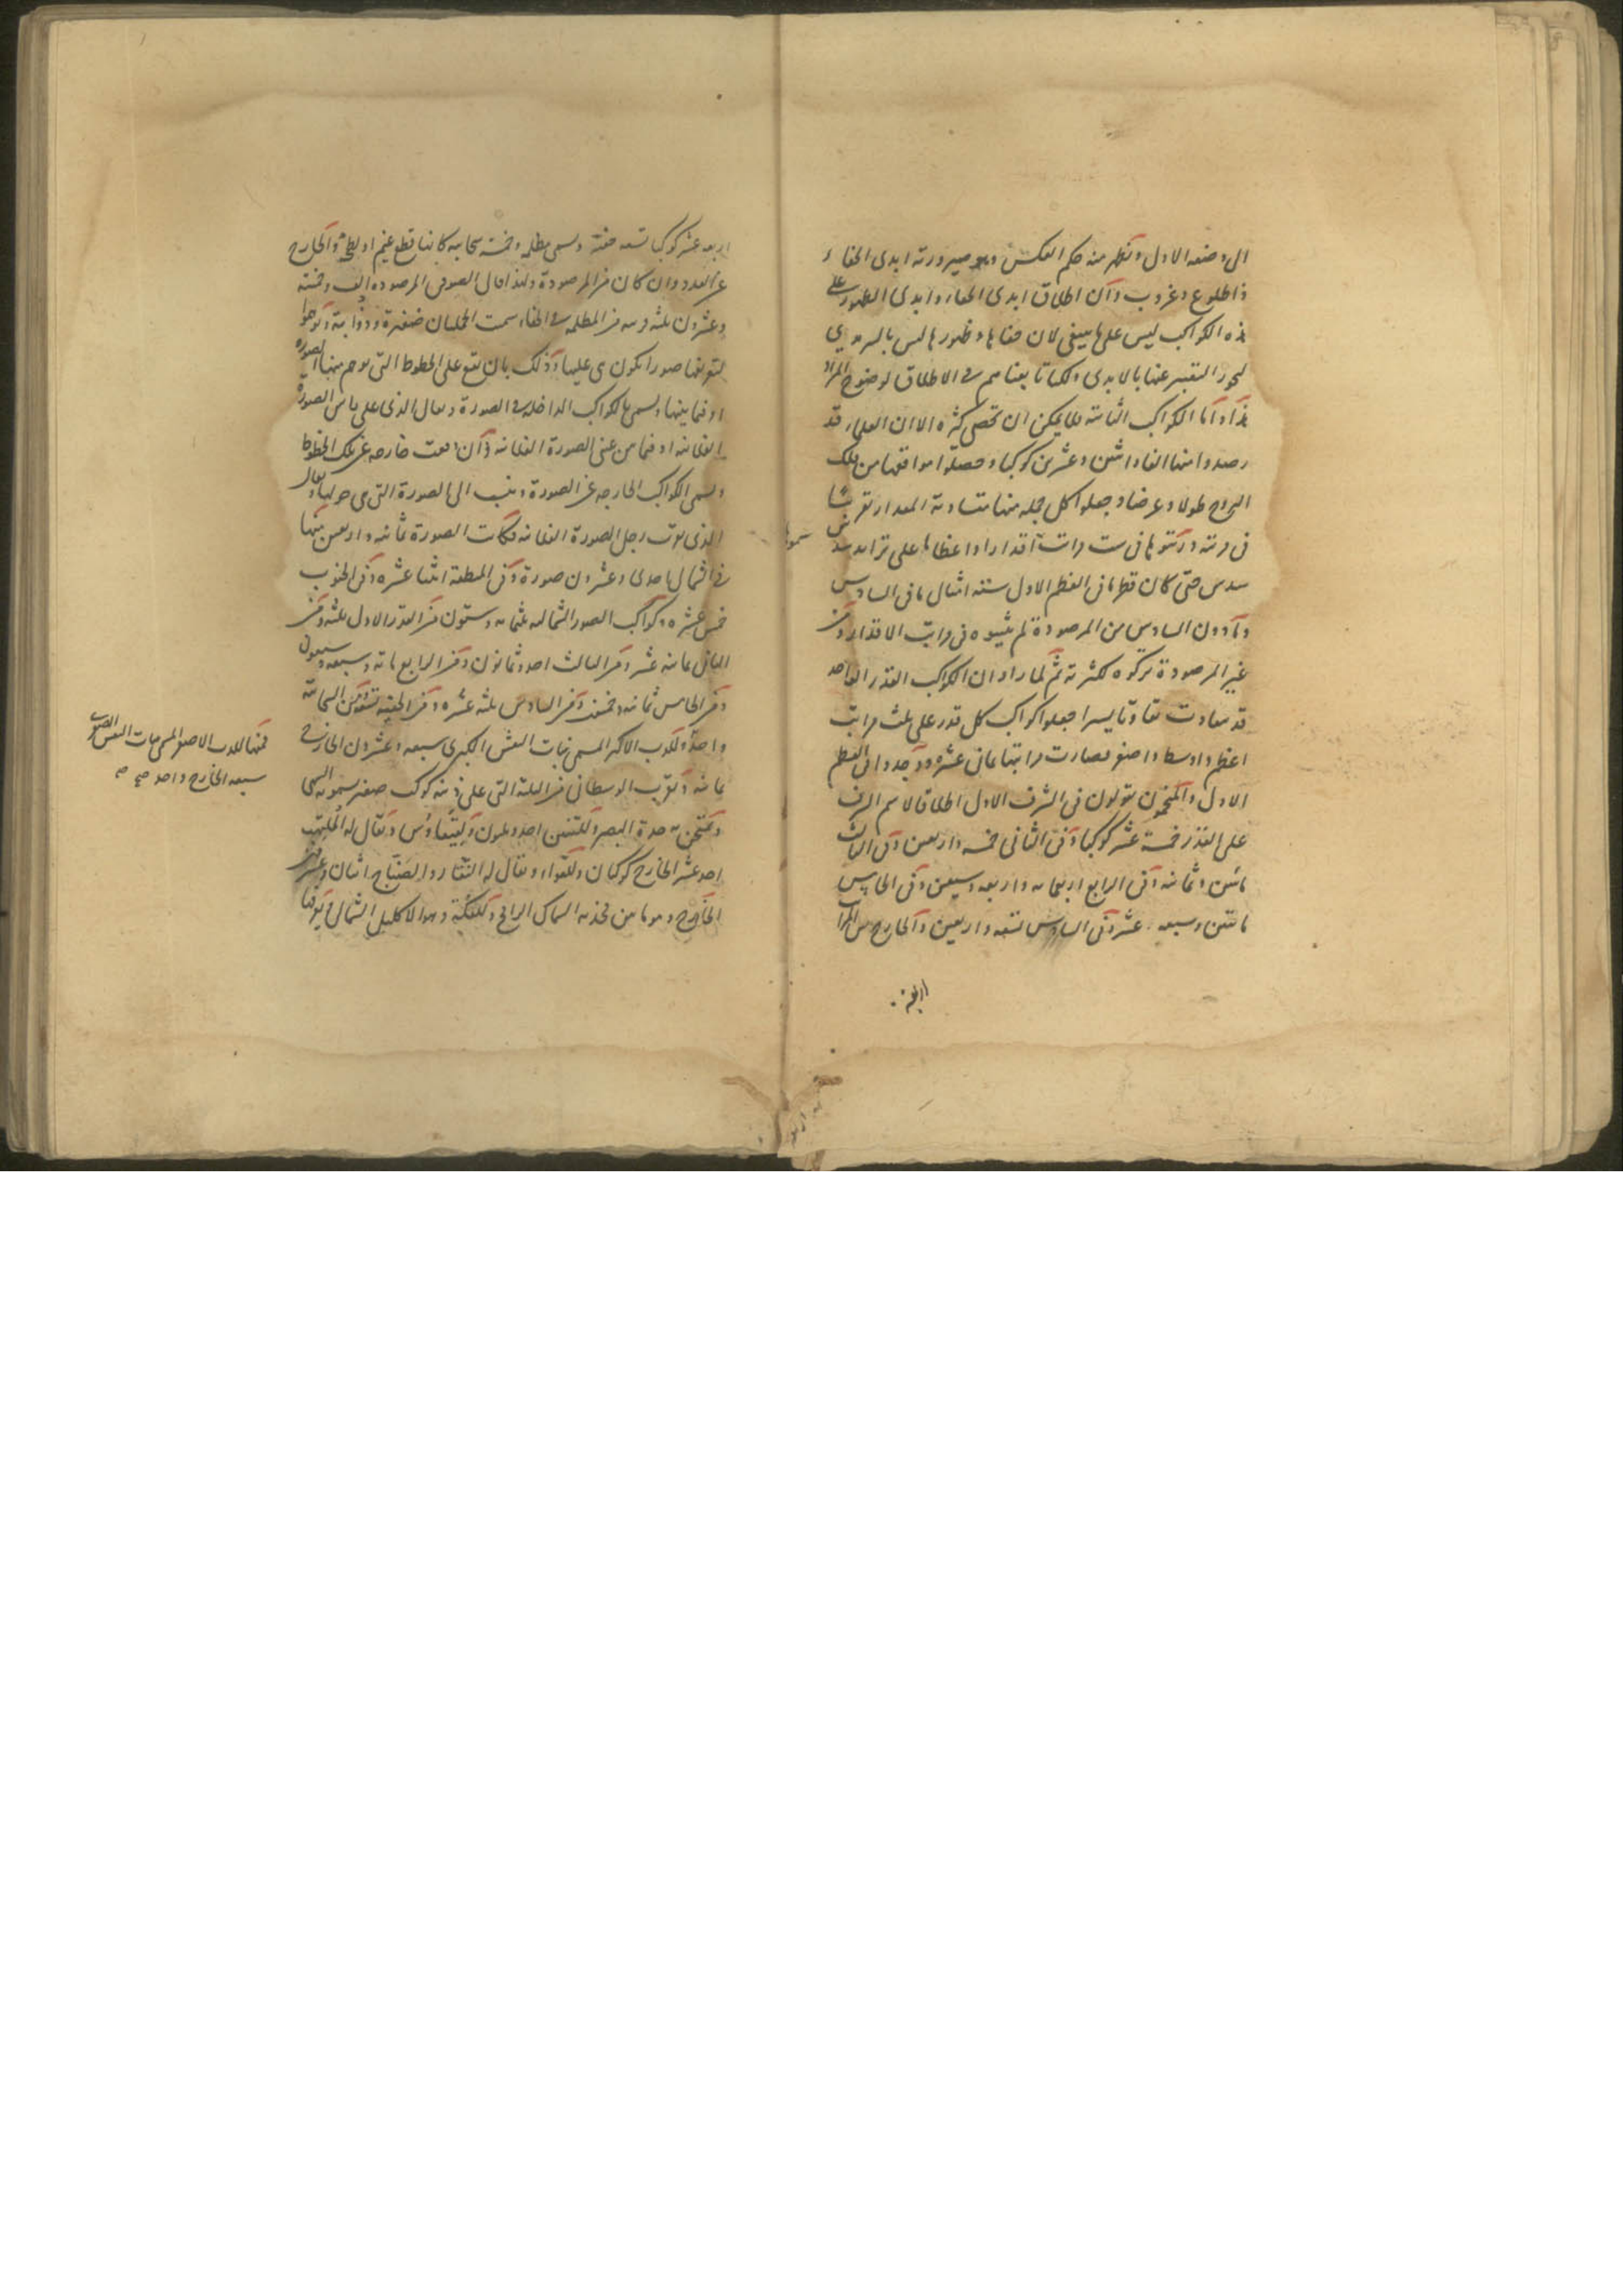 الى وضعه الاول ويظهر منه حكم العكس وهو صيرورته ابدى الخفاء
ذا طلوع وغروب وان اطلاق ابدى الخفاء وابدى الظهور على
هذه الكواكب ليس على ما ينبغى لان خفاءها وظهورها ليس بالسرمدى
ليجوز التعبير عنها بالابدى ولكنا تابعناهم فى الاطلاق لوضوح المراد
هذا واما الكواكب الثابته فلا يمكن ان تحصى كثرة الا ان العلماء قد
رصدوا منها الفا واثنين وعشرين كوكبا وحصلوا مواقعها من فلك
البروج طولا وعرضا وجعلوا كل جمله منها متساوية المقدار تقريبا
فى مرتبه ورتبوها فى ست مراتب اقدارا واعظاما على تزايد سدس
سدس حتى كان قطر ما فى العظم الاول ستة امثال ما فى السادس
وما دون السادس من المرصودة لم يثبتوه فى مراتب الاقدار ومن
غير المرصودة تركوه لكثرته ثم لما راوا ان الكواكب القدر الواحد
قد تفاوتت تفاوتا يسيرا جعلوا كواكب كل قدر على ثلث مراتب
اعظم واوسط واصغر فصارت مراتبها ثمانى عشرة ووجدوا فى العظم
الاول والمنجمون يقولون فى الشرف الاول اطلاقا لاسم الشرف
على القدر خمسة عشر كوكبا وفى الثانى خمسه واربعين وفى الثالث
مائتين وثمانيه وفى الرابع اربعمائه واربعه وسبعين وفى الخامس
مائتين وسبعه عشر وفى السادس تسعه واربعين والخارج من المراتب
اربعه عشر كوكبا تسعه خفية وتسمى مظلمه وخمسه سحابيه كانها قطع غيم او لطخة والخارج
عن العدد وان كان من المرصودة ولهذا قال الصوفى المرصوده الف وخمسة
وعشرون ثلثه منه من المظلمه فى الخفاء سمت الجملتان ضفيرة وذؤابة وتوهموا
لتعريفها صورا تكون هى عليها وذلك بان تقع على الخطوط التى توهم منها الصورة
او فيما بينها وتسمى بالكواكب الداخله فى الصورة ويقال الذى على راس الصورة
الفلانيه او فيما بين عينى الصورة الفلانيه وان وقعت خارجه عن تلك الخطوط
وتسمى الكواكب الخارجه عن الصورة وينسب الى الصورة التى هى حولها ويقال
الذى تحت رجل الصورة الفلانيه فكانت الصورة ثمانيه واربعين منها
فى الشمال احدى وعشرون صورة وفى المنطقة اثنتا عشرة وفى الجنوب
خمس عشرة وكواكب الصور الشماليه ثلثمائه وستون من القدر الاول ثلثه ومن
الثانى ثمانيه عشر ومن الثالث احد وثمانون ومن الرابع مائه وسبعه وسبعون
ومن الخامس ثمانيه وخمسون ومن السادس ثلثه عشره ومن الخفيه تسعه ومن السحابية
واحد وللدب الاكبر المسمى بنات النعش الكبرى سبعه وعشرون الخارج
ثمانيه وبقرب الوسطانى من الثلثة التى على ذنبه كوكب صغير يسمونه السهى
ويمتحن به حدة البصر وللتنين احد وثلثون ولقيقاوس ويقال له الملتهب
احد عشر الخارج كوكبان وللعواء ويقال له النقار والصياح اثنان وعشرون
الخارج وهو ما بين فخذيه السماك الرامح وللفكة وهو الاكليل الشمالى ويعرف
فمنها للدب الاصغر المسمى ببنات النعش الصغرى
سبعه الخارج واحد صح